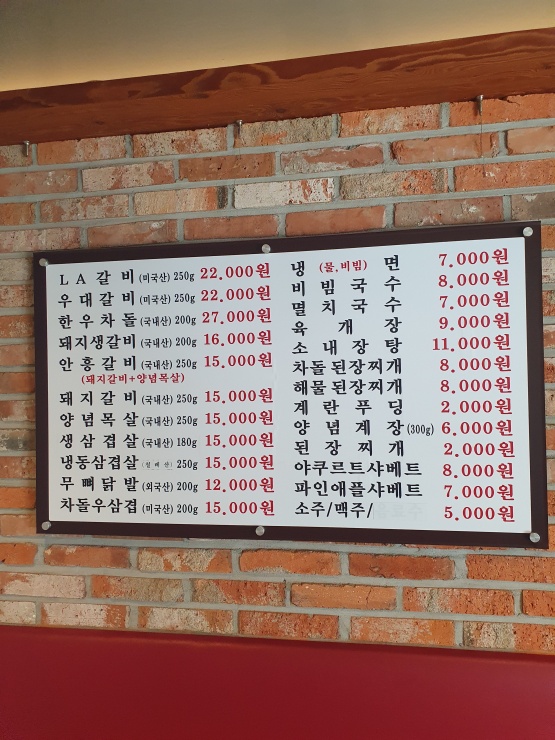 LA갈비 (미국산) 250g 22.000원
우대갈비 (미국산) 250g 22.000원
한우차돌 (국내산) 200g 27.000원
돼지생갈비 (국내산) 200g 16.000원
안흥갈비 (국내산) 250g 15.000원
(돼지갈비+양념목살)
돼지갈비 (국내산) 250g 15.000원
양념목살 (국내산) 250g 15.000원
생삼겹살 (국내산) 180g 15.000원
냉동삼겹살 250g 15.000원
무뼈닭발 (외국산) 200g 12.000원
차돌우삼겹 (미국산) 200g 15.000원
냉 (물,비빔) 면 7.000원
비빔국수 8.000원
멸치국수 7.000원
육개장 9.000원
소내장탕 11.000원
차돌된장찌개 8.000원
해물된장찌개 8.000원
계란푸딩 2.000원
양념게장 (300g) 6.000원
된장찌개 2.000원
야쿠르트샤베트 8.000원
파인애플샤베트 7.000원
소주/맥주/ 5.000원